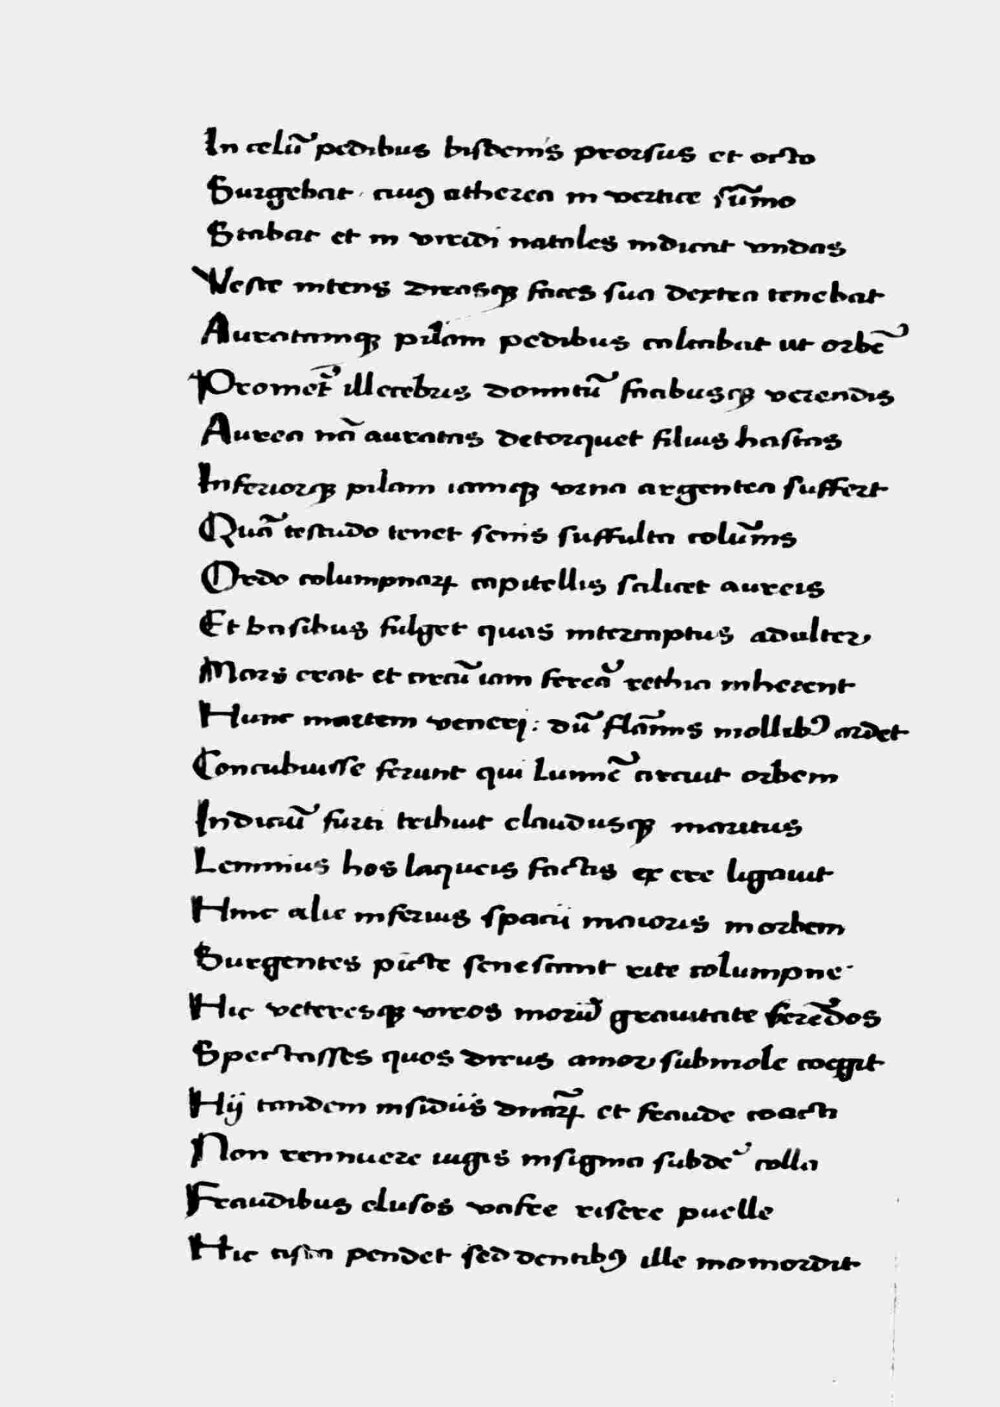 In celū pedibus bisdenis prorsus et octo
Surgebat cuiꝰ etherea in vertice sūmo
Stabat et in viridi natales indicat undas
Veste nitens dirasqꝫ faces sua dextra tenebat
Auratamqꝫ pilam pedibus calcabat ut orbē
Promeť illecebris domitū facibusqꝫ verendis
Aurea nā auratas detorquet filius hastas
Inferiorqꝫ pilam iamqꝫ vrna argentea suffert
Quā testudo tenet senis suffulta colūnis
Ordo columpnaꝝ capitellis scilicet aureis
Et basibus fulget quas interceptus adulter
Mars erat et circū iam ferrea rethia inherent
Hunc martem veneri : dū flāmis mollibꝰ ardet
Concubuisse ferunt qui lumē circuit orbem
Indiciū furti tribuit claudusqꝫ maritus
Lemnius hos laqueis factis ex ere ligauit
Hinc alie inferius spacii maioris in orbem
Surgentes picte senescunt rite columpne
Hic veteresqꝫ viros moꝝ grauitate ferēdos
Spectasses quos dirus amor submole coegit
Hij tandem insidiis dnaꝝ et fraude coacti
Non rennuere iugis insignia subdē colla
Fraudibus elusos vafre risere puelle
Hic cista pendet sed dentibꝰ ille momordit